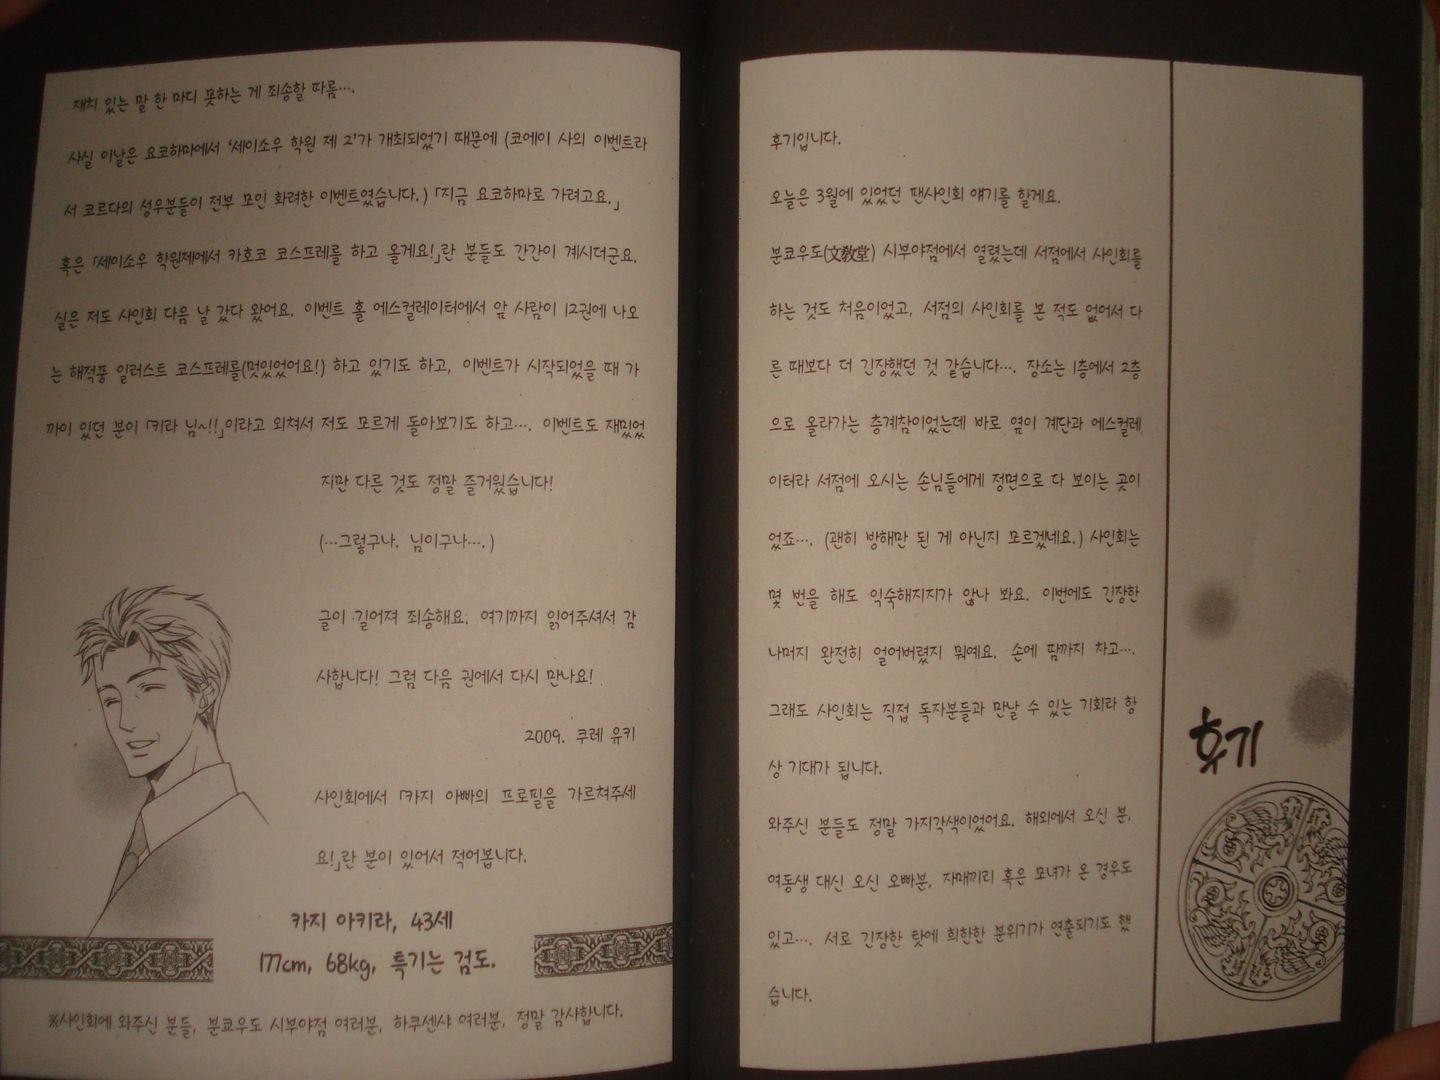 후기
후기입니다.
오늘은 3월에 있었던 팬사인회 얘기를 할게요.
분쿄우도(文教堂) 시부야점에서 열렸는데 서점에서 사인회를
하는 것도 처음이었고, 서점의 사인회를 본 적도 없어서 다
른 때보다 더 긴장했던 것 같습니다…. 장소는 1층에서 2층
으로 올라가는 층계참이었는데 바로 옆이 계단과 에스컬레
이터라 서점에 오시는 손님들에게 정면으로 다 보이는 곳이
었죠…. (괜히 방해만 된 게 아닌지 모르겠네요.) 사인회는
몇 번을 해도 익숙해지지가 않나 봐요. 이번에도 긴장한
나머지 완전히 얼어버렸지 뭐예요. 손에 땀까지 차고….
그래도 사인회는 직접 독자분들과 만날 수 있는 기회라 항
상 기대가 됩니다.
와주신 분들도 정말 가지각색이었어요. 해외에서 오신 분,
여동생 대신 오신 오빠분, 자매끼리 혹은 모녀가 온 경우도
있고…. 서로 긴장한 탓에 희한한 분위기가 연출되기도 했
습니다.
재치 있는 말 한 마디 못하는 게 죄송할 따름….
사실 이날은 요코하마에서 '세이소우 학원 제 2'가 개최되었기 때문에 (코에이 사의 이벤트라
서 코르다의 성우분들이 전부 모인 화려한 이벤트였습니다.) 「지금 요코하마로 가려고요.」
혹은 「세이소우 학원제에서 카호코 코스프레를 하고 올게요!」란 분들도 간간이 계시더군요.
실은 저도 사인회 다음 날 갔다 왔어요. 이벤트 홀 에스컬레이터에서 앞 사람이 12권에 나오
는 해적풍 일러스트 코스프레를(멋있었어요!) 하고 있기도 하고, 이벤트가 시작되었을 때 가
까이 있던 분이 「키라 님~!!」이라고 외쳐서 저도 모르게 돌아보기도 하고…. 이벤트도 재밌었
지만 다른 것도 정말 즐거웠습니다!
(…그렇구나. 님이구나….)
글이 길어져 죄송해요. 여기까지 읽어주셔서 감
사합니다! 그럼 다음 권에서 다시 만나요!
2009. 쿠레 유키
사인회에서 「카지 아빠의 프로필을 가르쳐주세
요!」란 분이 있어서 적어봅니다.
카지 아키라, 43세
177cm, 68kg, 특기는 검도.
※사인회에 와주신 분들, 분쿄우도 시부야점 여러분, 하쿠센샤 여러분, 정말 감사합니다.